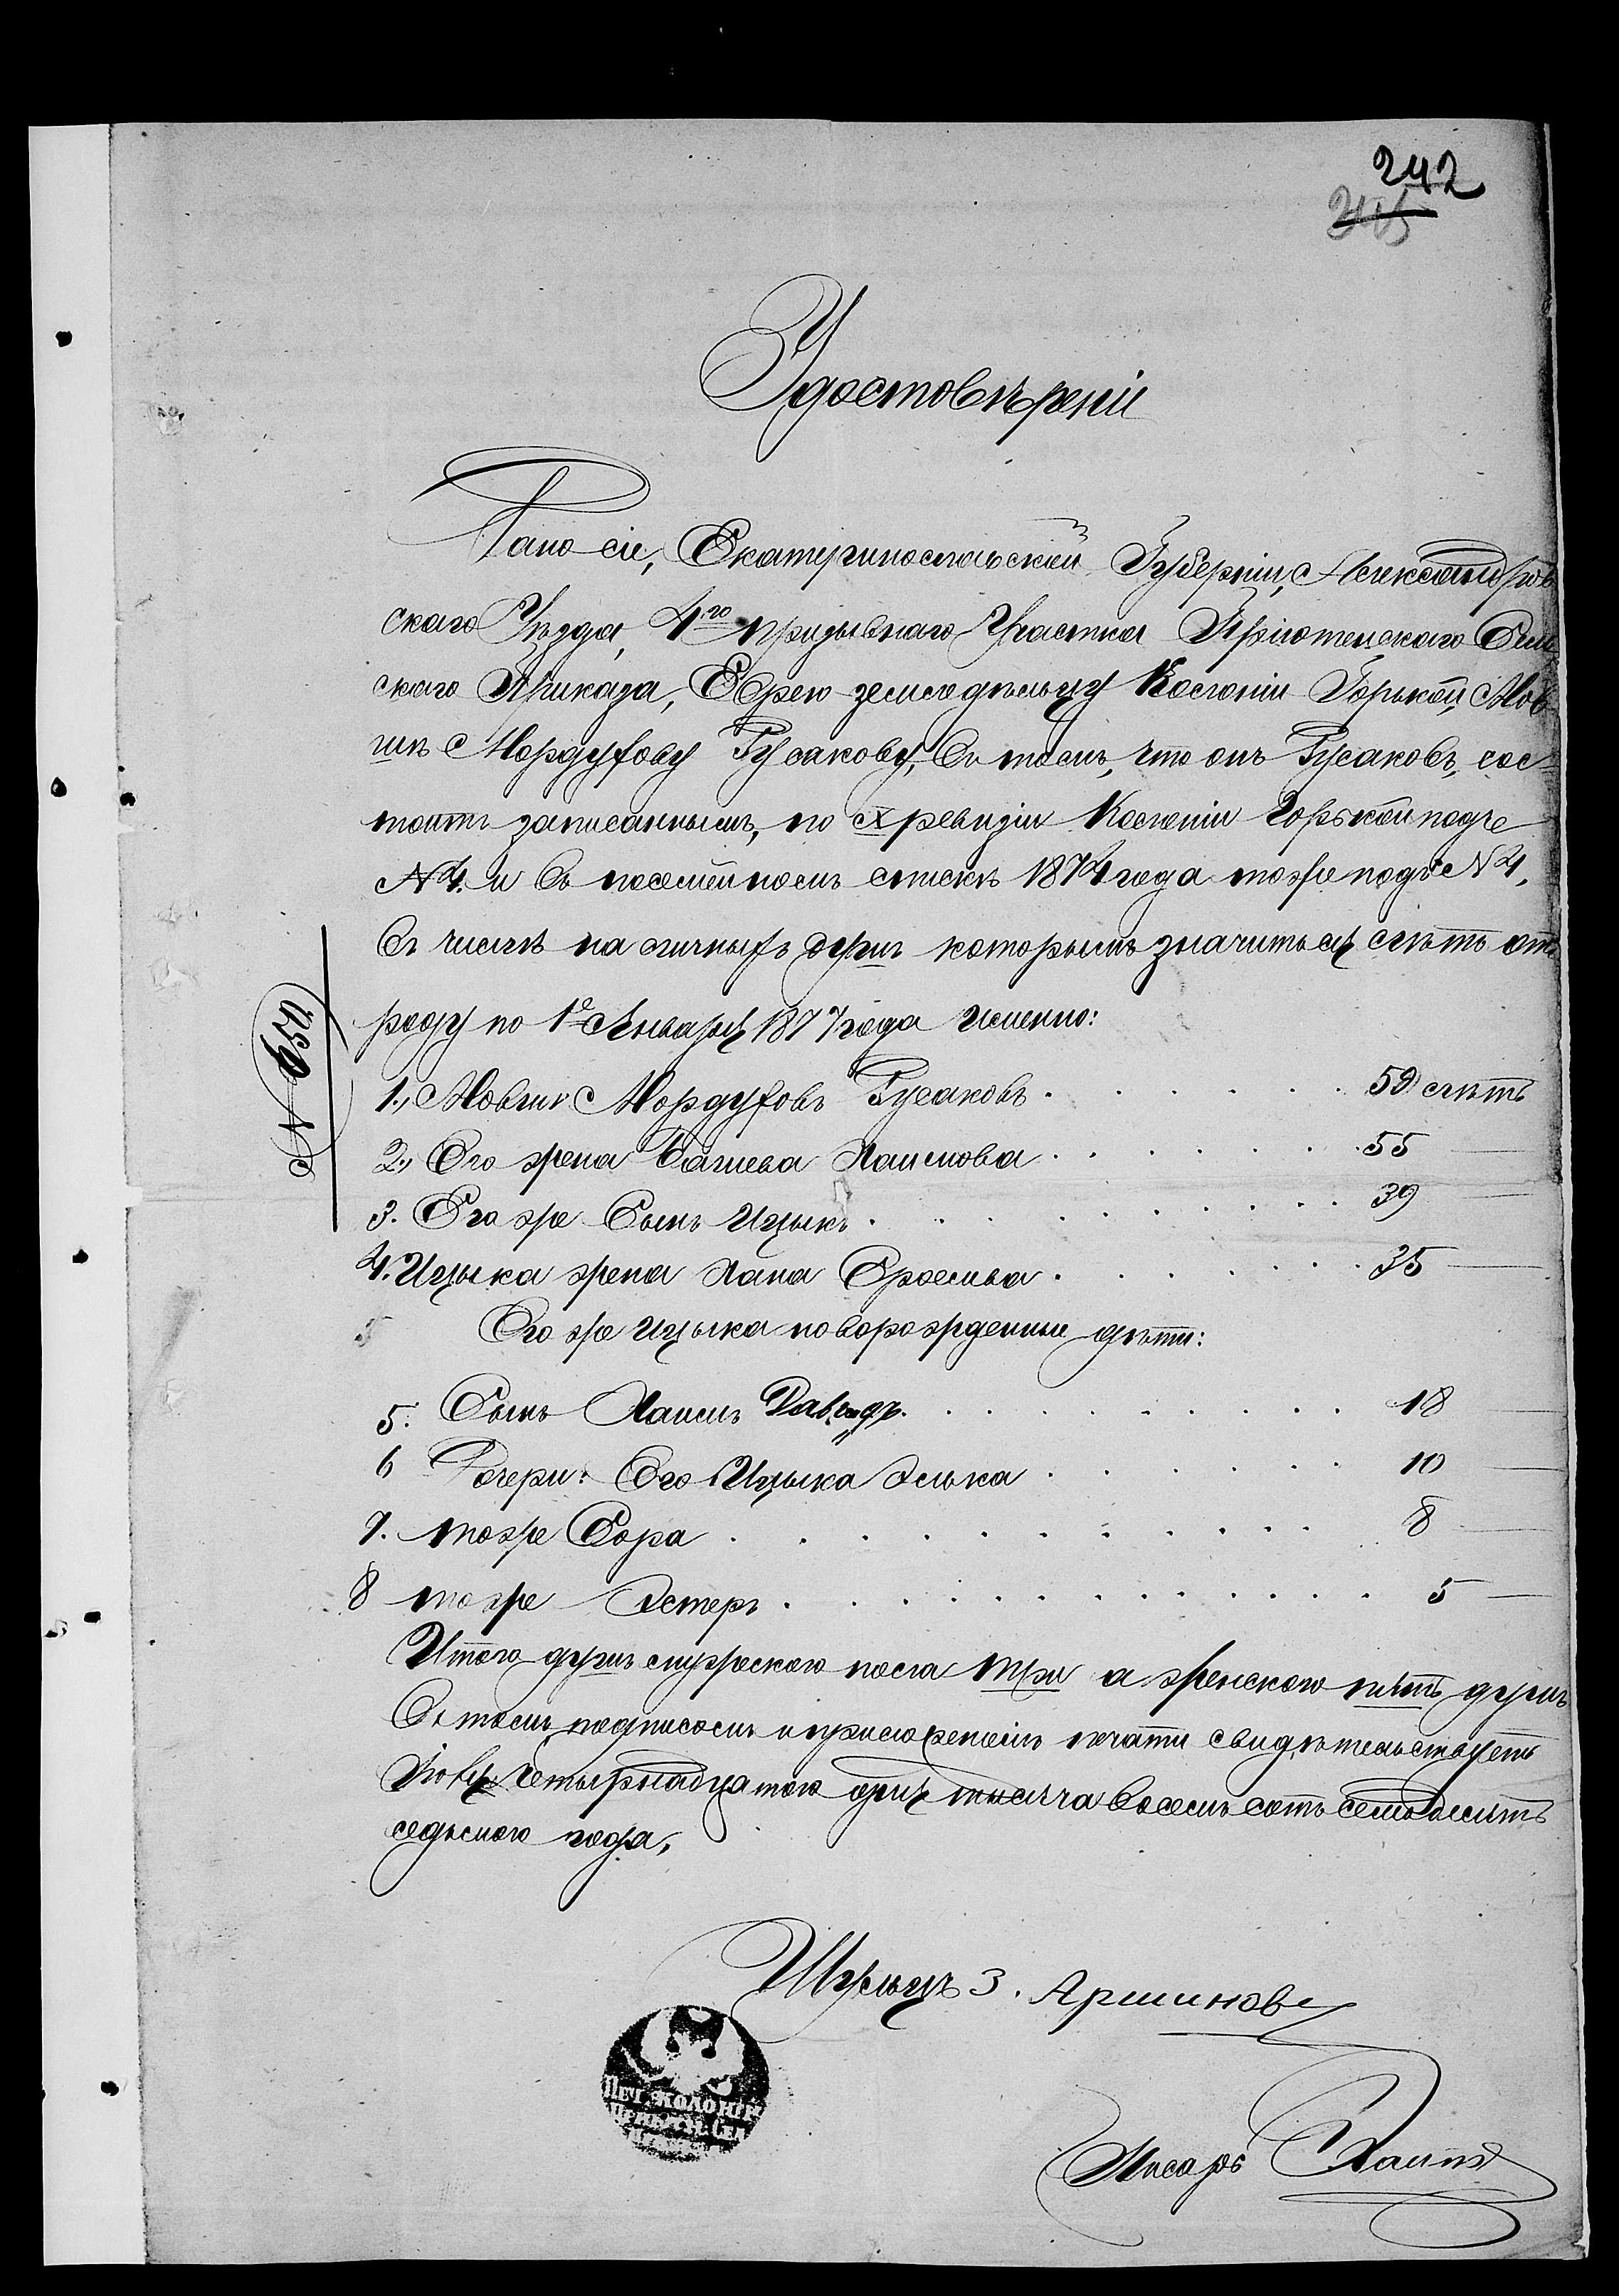 242
245
Удостовѣреніе
Дано сіе, Екатеринославской Губерніи, Александров
скаго Уѣзда, 4го призывнаго Участка Пріютенскаго Сель
скаго Приказа, Еврею земледѣльцу Колоніи Горькой, Мов
шѣ Мордухову Гусакову, въ томъ, что онъ Гусаковъ, сос
тоитъ записаннымъ, по X ревизіи Колоніи Горькой подъ
№ 4. и въ посемейномъ спискѣ 1874 года тоже подъ № 4,
въ числѣ наличныхъ душъ которымъ значиться лѣтъ отъ
роду по 1е Января 1877 года именно:
№ 650
1., Мовша Мордуховъ Гусаковъ . . . . . . 59 лѣтъ
2., Его жена Башева Хаимова . . . . . . . 55 —
3. Его же Сынъ Ицыкъ . . . . . . . . . 39 —
4. Ицыка жена Хана Сроелева . . . . . . . 35 —
5 Его же Ицыка новорожденные дѣти:
5. Сынъ Хаимъ Давыдъ . . . . . . . . . 18 —
6 Дочери: Его Ицыка Элька . . . . . . 10 —
7. тоже Сора . . . . . . . . . . 8 —
8 тоже Эстеръ . . . . . . . . . . . 5 —
Итого душъ мужескаго пола три а женскаго пять душъ
Въ томъ подписомъ и приложеніемъ печати свидѣтельствуетъ
четырнадцатого дня тысяча восемь сотъ семьдесятъ
седьмого года,
Шульцъ З. Аршиновъ
Печ. Колоніи
Приказ. Сел
Писарь